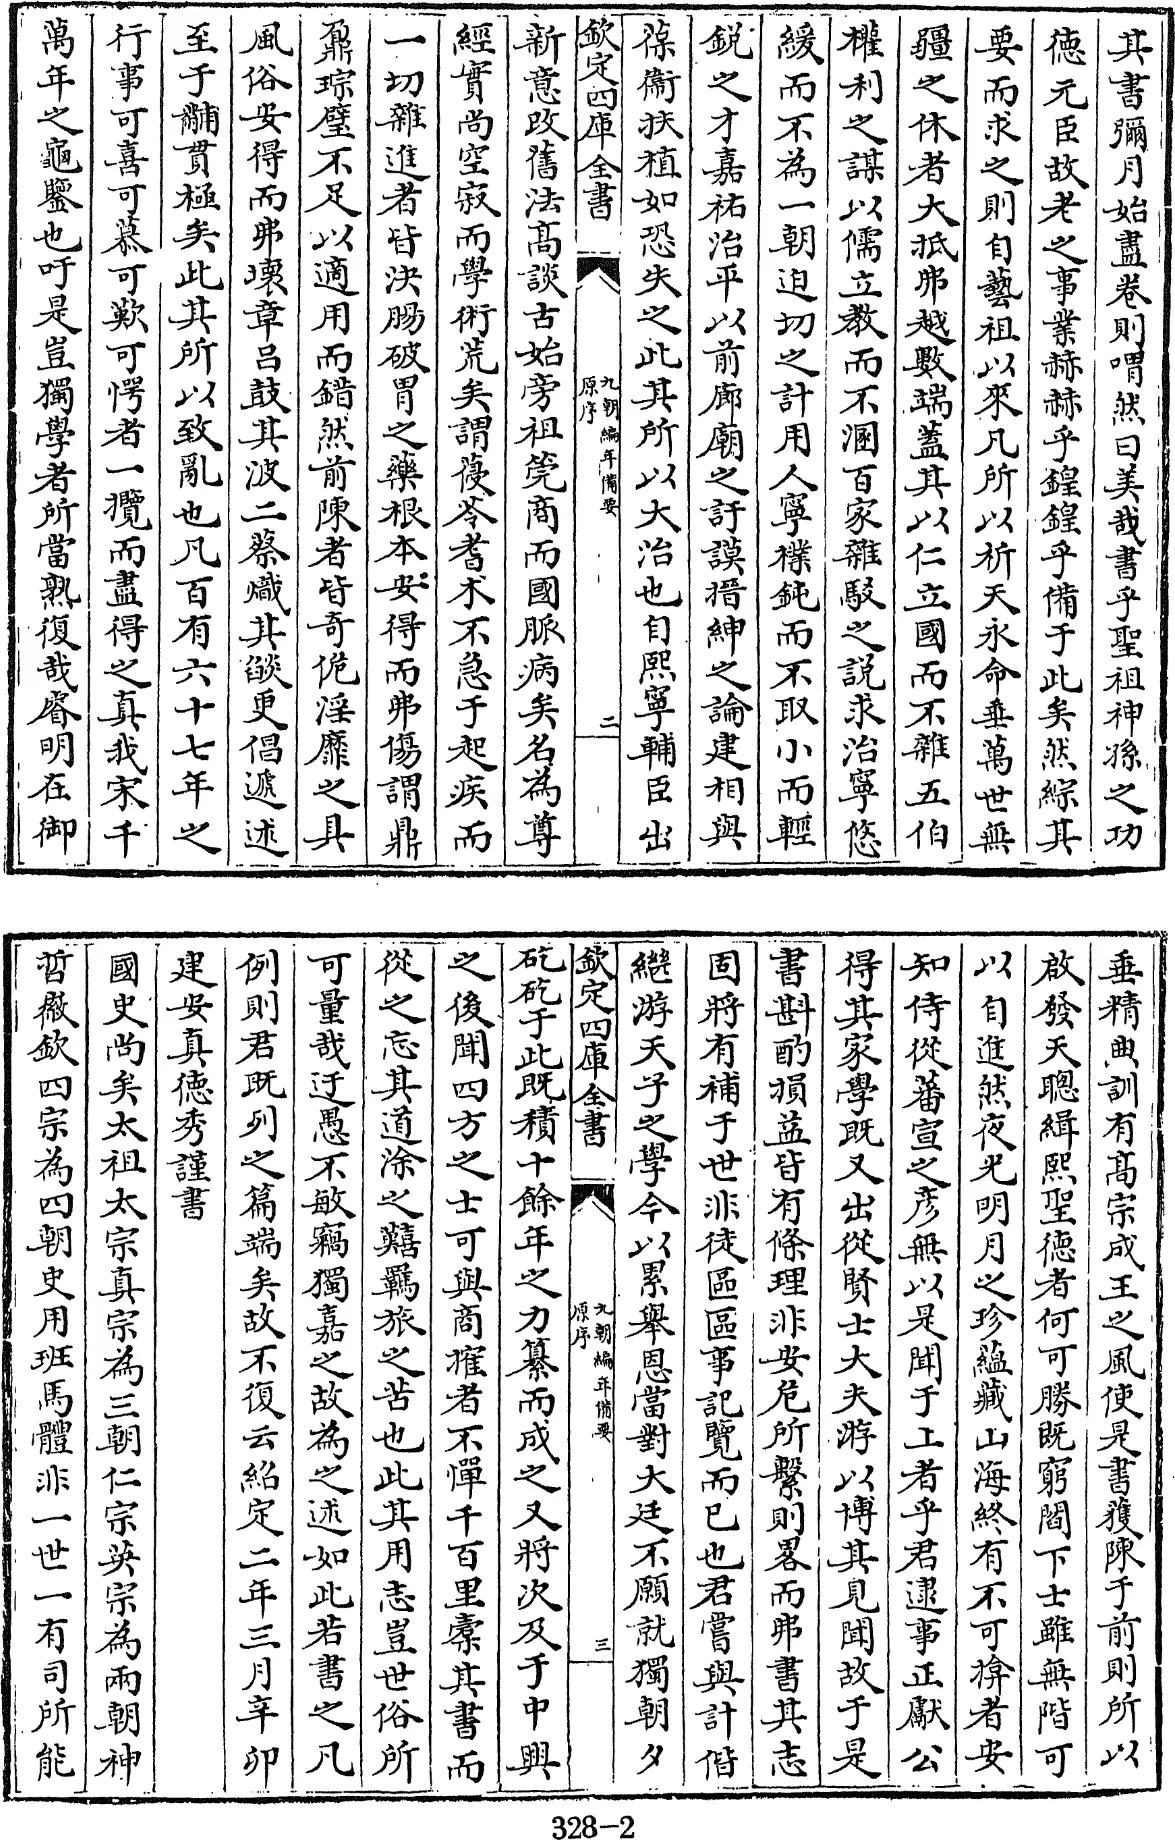 其書彌月始盡卷則喟然曰美哉書乎聖祖神孫之功
徳元臣故老之事業赫赫乎鍠鍠乎備于此矣然綜其
要而求之則自藝祖以來凡所以祈天永命垂萬世無
疆之休者大抵弗越數端蓋其以仁立國而不雜五伯
權利之謀以儒立教而不溷百家雜駁之説求治寧悠
緩而不為一朝迫切之計用人寧樸鈍而不取小而輕
鋭之才嘉祐治平以前廊廟之訏謨搢紳之論建相與
葆衞扶植如恐失之此其所以大治也自熙寧輔臣出
欽定四庫全書
九朝編年備要
原序
二
新意改舊法髙談古始旁祖筦商而國脈病矣名為尊
經實尚空寂而學術荒矣謂葠苓耆术不急于起疾而
一切雜進者皆決腸破胃之藥根本安得而弗傷謂鼎
鼐琮璧不足以適用而錯然前陳者皆奇佹淫靡之具
風俗安得而弗壞章呂鼓其波二蔡熾其燄更倡遞述
至于黼貫極矣此其所以致亂也凡百有六十七年之
行事可喜可慕可歎可愕者一攬而盡得之真我宋千
萬年之龜鑒也吁是豈獨學者所當熟復哉睿明在御
垂精典訓有髙宗成王之風使是書獲陳于前則所以
啟發天聰緝熙聖德者何可勝既窮閻下士雖無階可
以自進然夜光明月之珍藴藏山海終有不可揜者安
知侍從蕃宣之彥無以是聞于上者乎君逮事正獻公
得其家學既又出從賢士大夫游以博其見聞故于是
書斟酌損益皆有條理非安危所繫則畧而弗書其志
固將有補于世非徒區區事記覽而已也君嘗與計偕
繼游天子之學今以累舉恩當對大廷不願就獨朝夕
欽定四庫全書
九朝編年備要
原序
三
矻矻于此既積十餘年之力纂而成之又將次及于中興
之後聞四方之士可與商搉者不憚千百里橐其書而
從之忘其道涂之囏羈旅之苦也此其用志豈世俗所
可量哉迂愚不敏竊獨嘉之故為之述如此若書之凡
例則君既列之篇端矣故不復云紹定二年三月辛卯
建安真徳秀謹書
國史尚矣太祖太宗真宗為三朝仁宗英宗為兩朝神
哲徽欽四宗為四朝史用班馬體非一世一有司所能
328-2